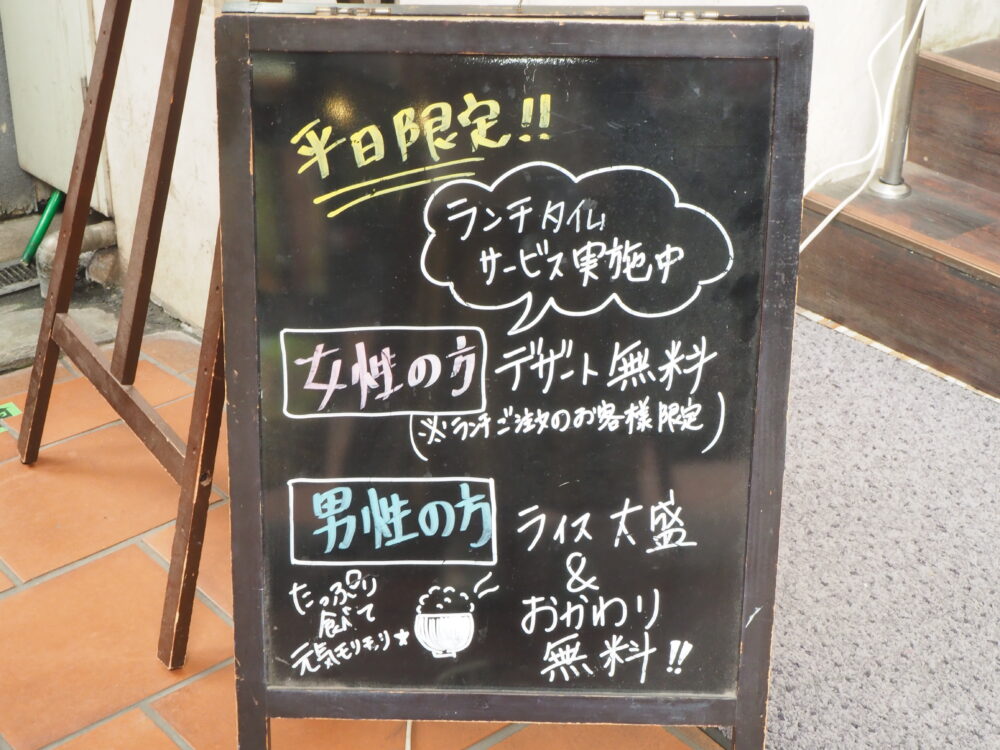 平日限定!!
ランチタイム
サービス実施中
女性の方 デザート無料
(※ランチご注文のお客様限定)
男性の方 ライス大盛
&
おかわり
無料!!
たっぷり
食べて
元気モリモリ★